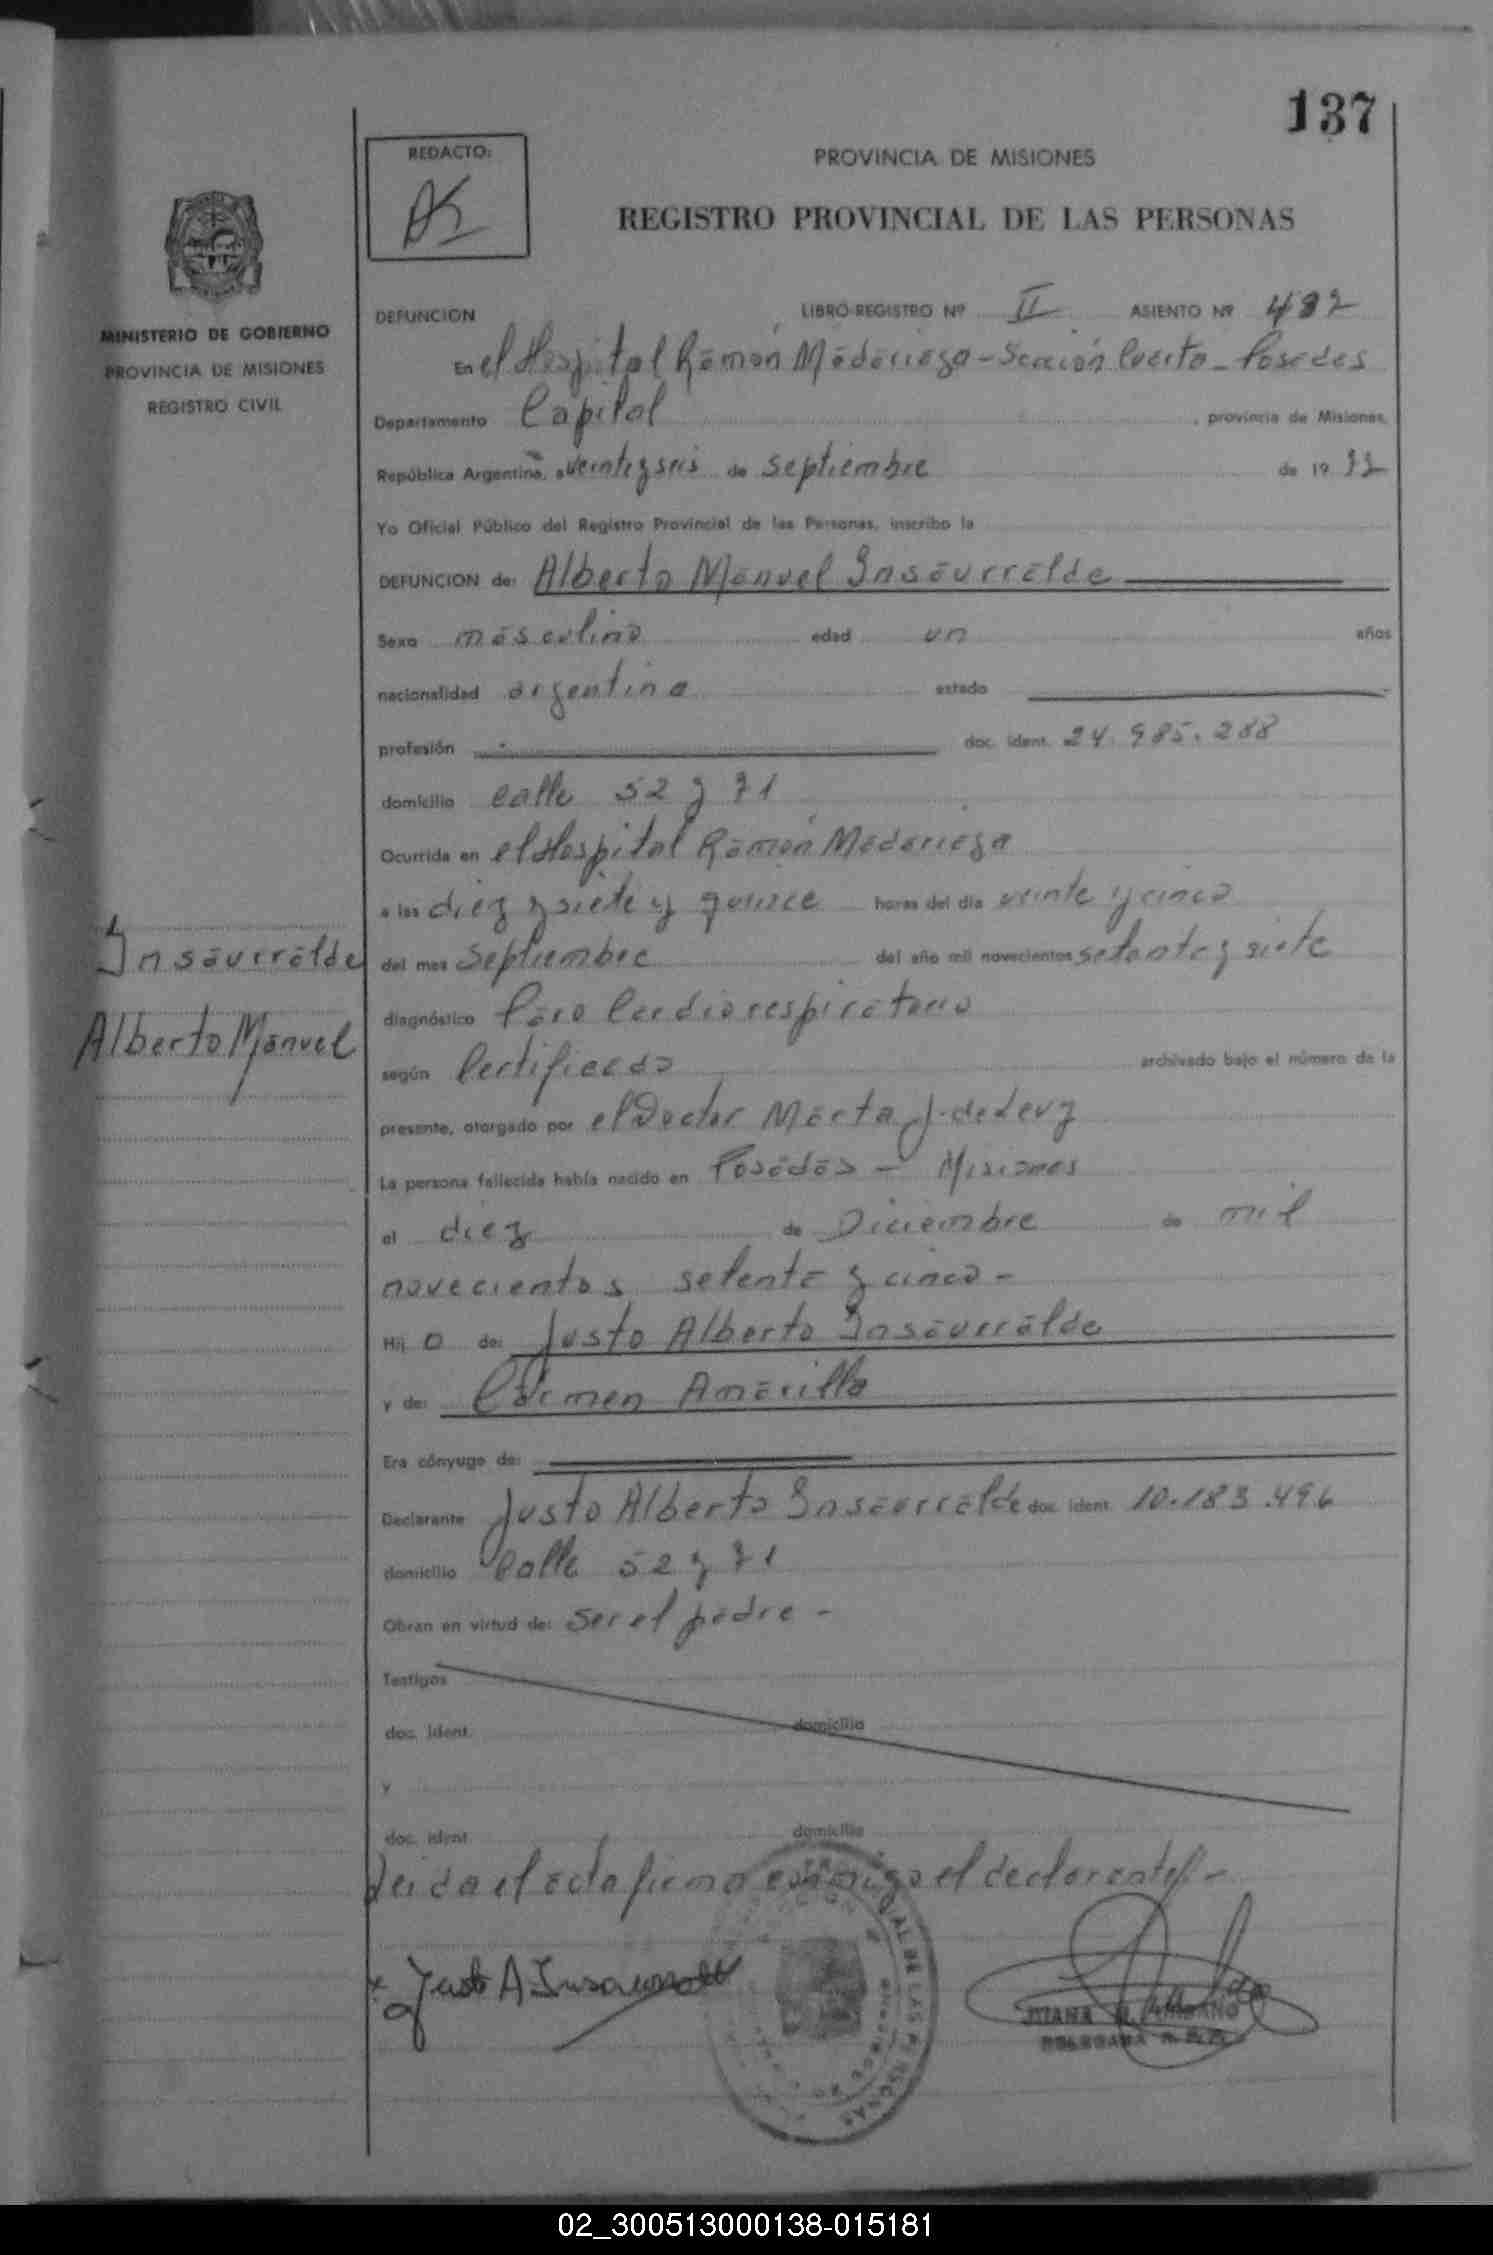 137
REDACTO:
PROVINCIA DE MISIONES
REGISTRO PROVINCIAL DE LAS PERSONAS
MINISTERIO DE GOBIERNO
PROVINCIA DE MISIONES
REGISTRO CIVIL
DEFUNCION LIBRO-REGISTRO Nº II ASIENTO Nº
En el Hospital Ramón Madariaga - Sección Puerto - Posadas
Departamento Capital, provincia de Misiones,
República Argentina, a veinte y seis de septiembre de 19 77
Yo Oficial Público del Registro Provincial de las Personas, inscribo la
DEFUNCION de: Alberto Manuel Insaurralde
Sexo masculino edad un años
nacionalidad argentina estado
profesión doc. ident. 24.985.288
domicilio calle 52 y 71
Ocurrida en el Hospital Ramón Madariaga
a las diez y siete y quince horas del día veinte y cinco
Insaurralde
del mes septiembre del año mil novecientos setenta y siete
diagnóstico Paro Cardiorespiratorio
Alberto Manuel
según Certificado archivado bajo el número de la
presente, otorgado por el Doctor Marta J. de Levy
La persona fallecida había nacido en Posadas - Misiones
el diez de Diciembre de mil
novecientos setenta y cinco -
Hij o de: Justo Alberto Insaurralde
y de: Carmen Amarilla
Era cónyuge de:
Declarante Justo Alberto Insaurralde doc. ident. 10.183.496
domicilio Calle 52 y 71
Obran en virtud de: ser el padre -
Testigos
doc. ident. domicilio
y
doc. ident. domicilio
Leida el acta firma conmigo el declarante -
Justo A Insaurralde
JUANA
DELEGADA R.P.P.
02_300513000138-015181